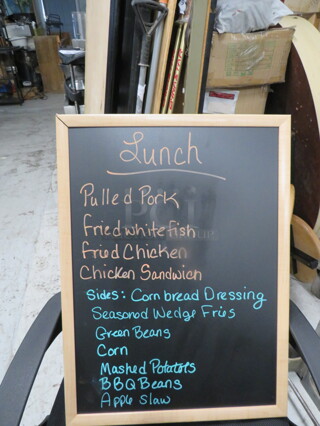 Lunch
Pulled Pork
Fried whitefish
Fried Chicken
Chicken Sandwich
Sides: Corn bread Dressing
Seasoned Wedge Fries
Green Beans
Corn
Mashed Potatoes
BBQ Beans
Apple Slaw